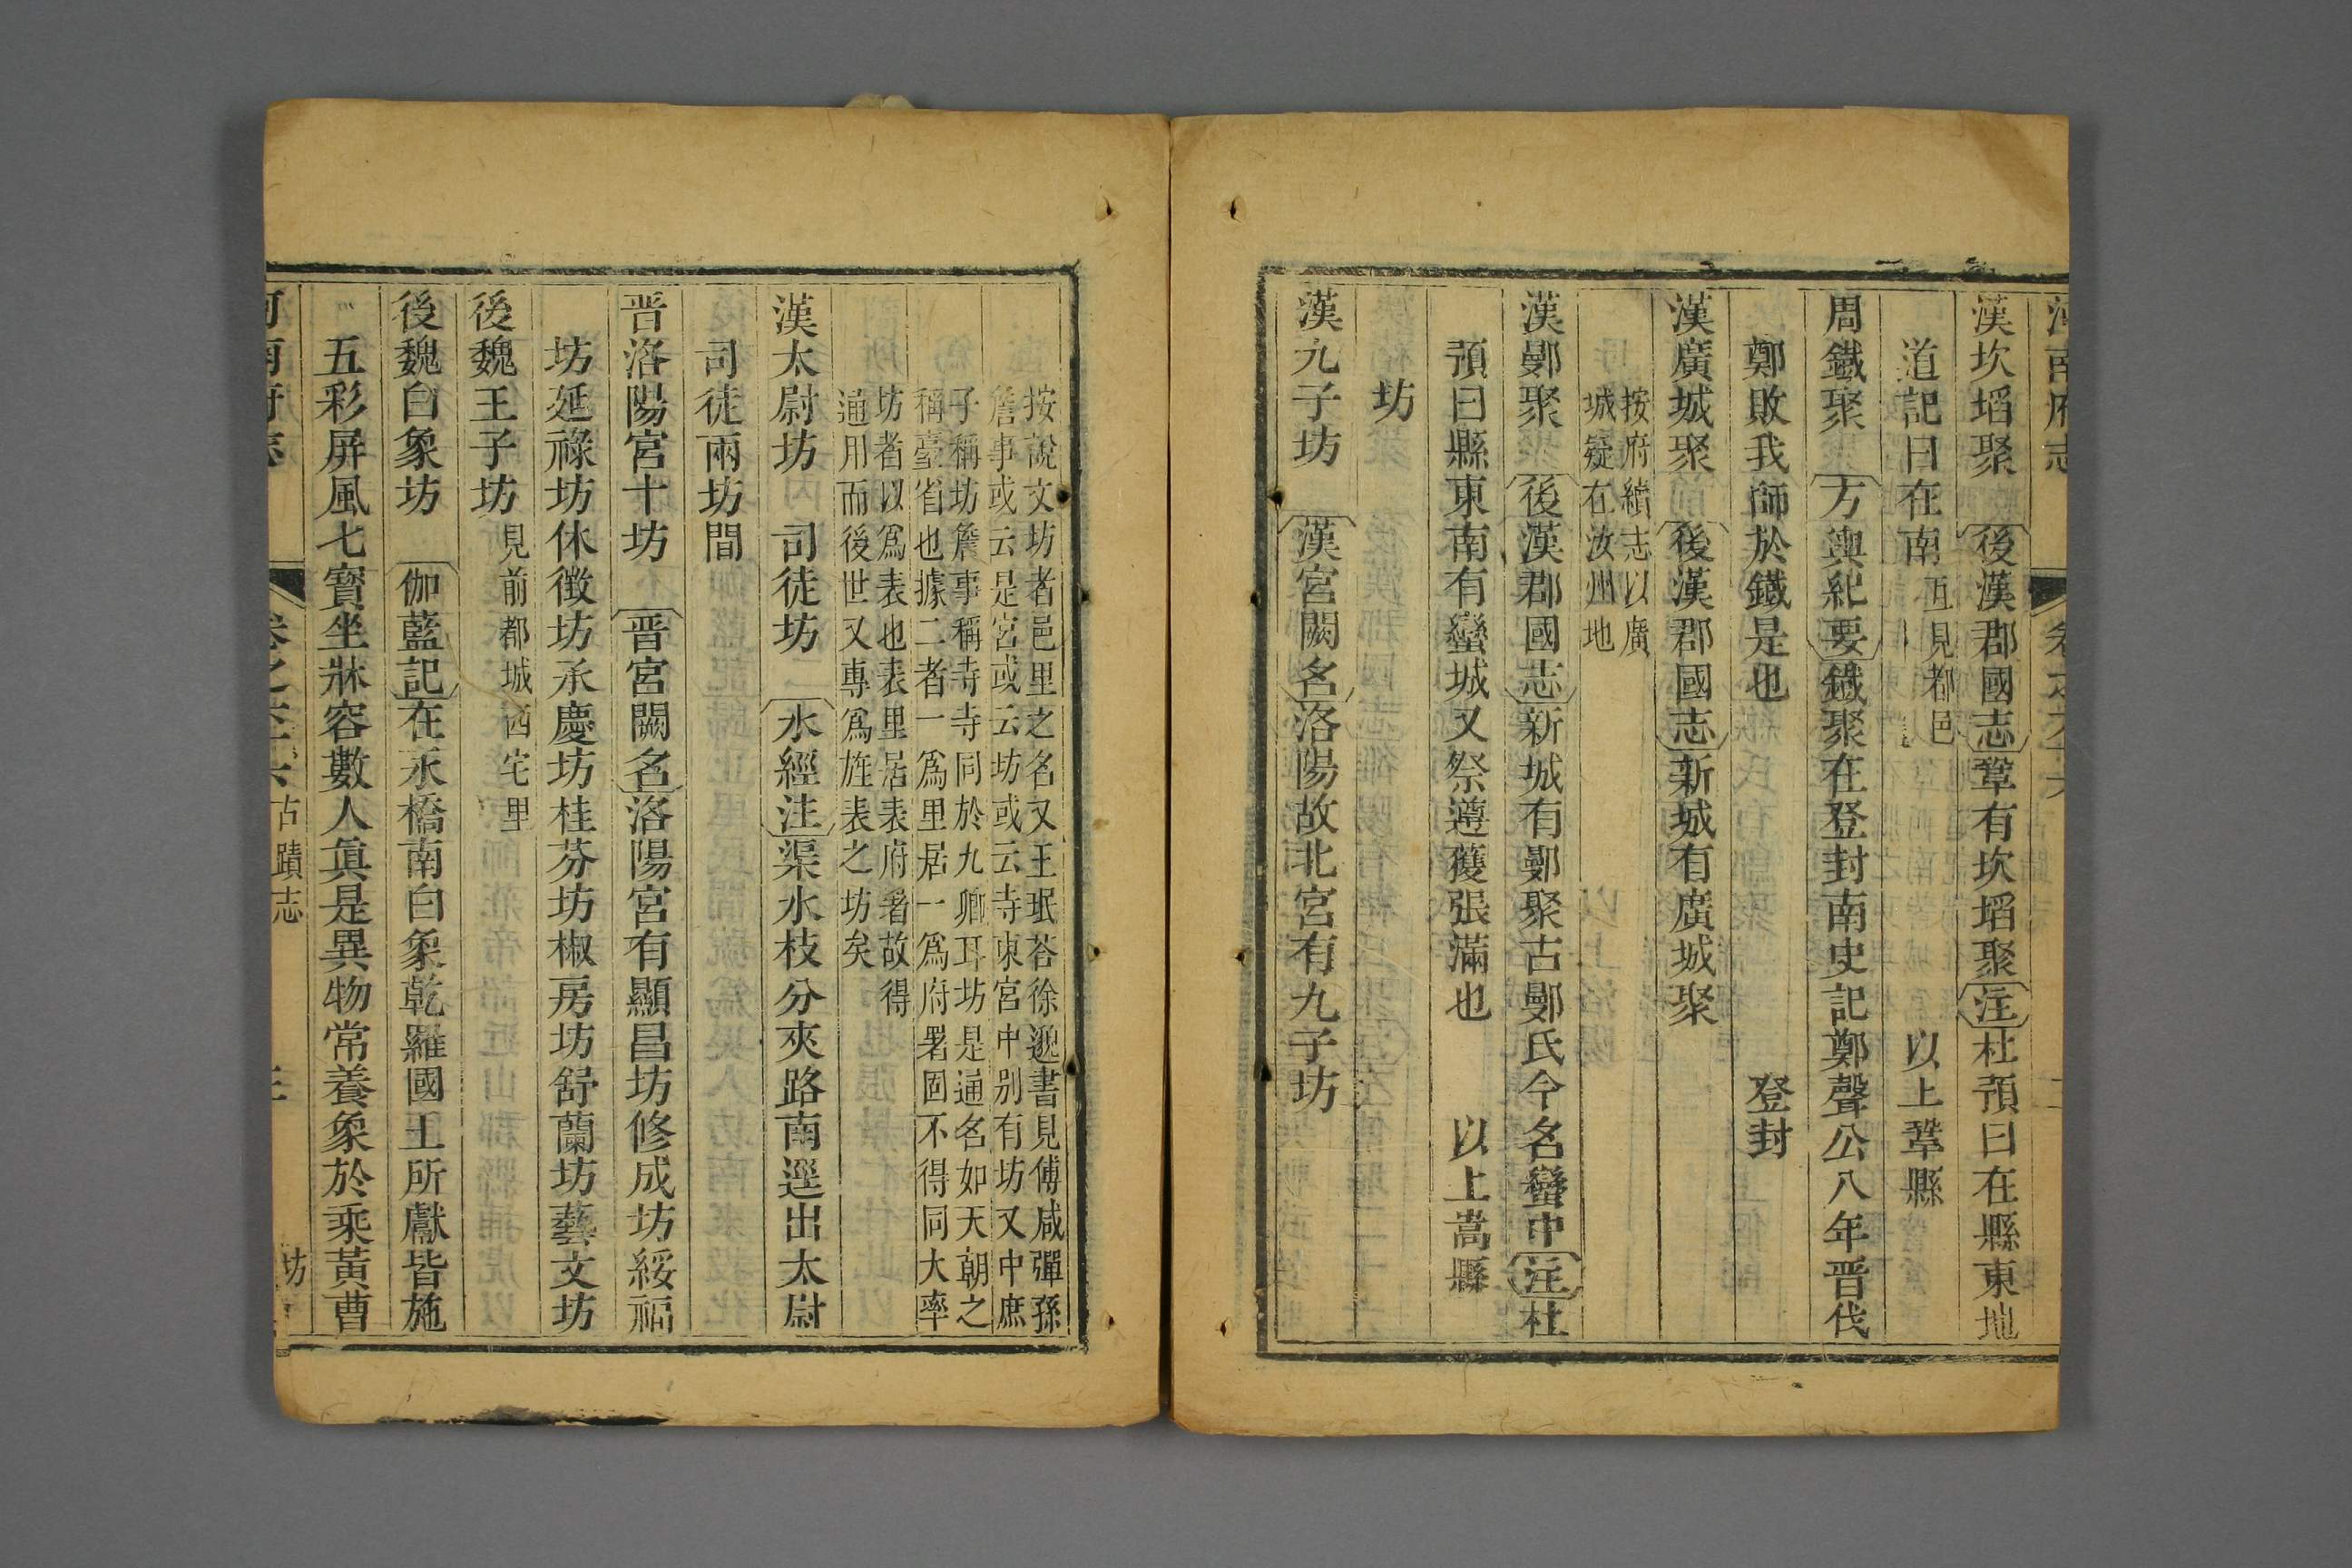 河南府志 卷之六十六
漢坎埳聚 後漢郡國志鞏有坎埳聚注杜預曰在縣東地
道記曰在南 互見都邑 以上鞏縣
周鐵聚 方輿紀要鐵聚在登封南史記鄭聲公八年晋伐
鄭敗我師於鐵是也 登封
漢廣城聚 後漢郡國志新城有廣城聚
按府續志以廣
城疑在汝州地
漢鄤聚 後漢郡國志新城有鄤聚古鄤氏今名蠻中注杜
預曰縣東南有蠻城又祭遵獲張滿也 以上嵩縣
坊
漢九子坊 漢宮闕名洛陽故北宮有九子坊
按說文坊者邑里之名又王珉荅徐邈書見傅咸彈孫
詹事或云是宮或云坊或云寺東宮中別有坊又中庶
子稱坊詹事稱寺寺同於九卿耳坊是通名如天朝之
稱臺省也據二者一爲里居一爲府署固不得同大率
坊者以爲表也表里居表府署故得
通用而後世又專爲旌表之坊矣
漢太尉坊 司徒坊 水經注渠水枝分夾路南逕出太尉
司徒兩坊間
晋洛陽宮十坊 晋宮闕名洛陽宮有顯昌坊修成坊綏福
坊延祿坊休徴坊承慶坊桂芬坊椒房坊舒蘭坊藝文坊
後魏王子坊 見前都城西宅里
後魏白象坊 伽藍記在永橋南白象乾羅國王所獻皆施
五彩屏風七寶坐牀容數人眞是異物常養象於乘黃曹
河南府志 卷之六十六 古蹟志 坊